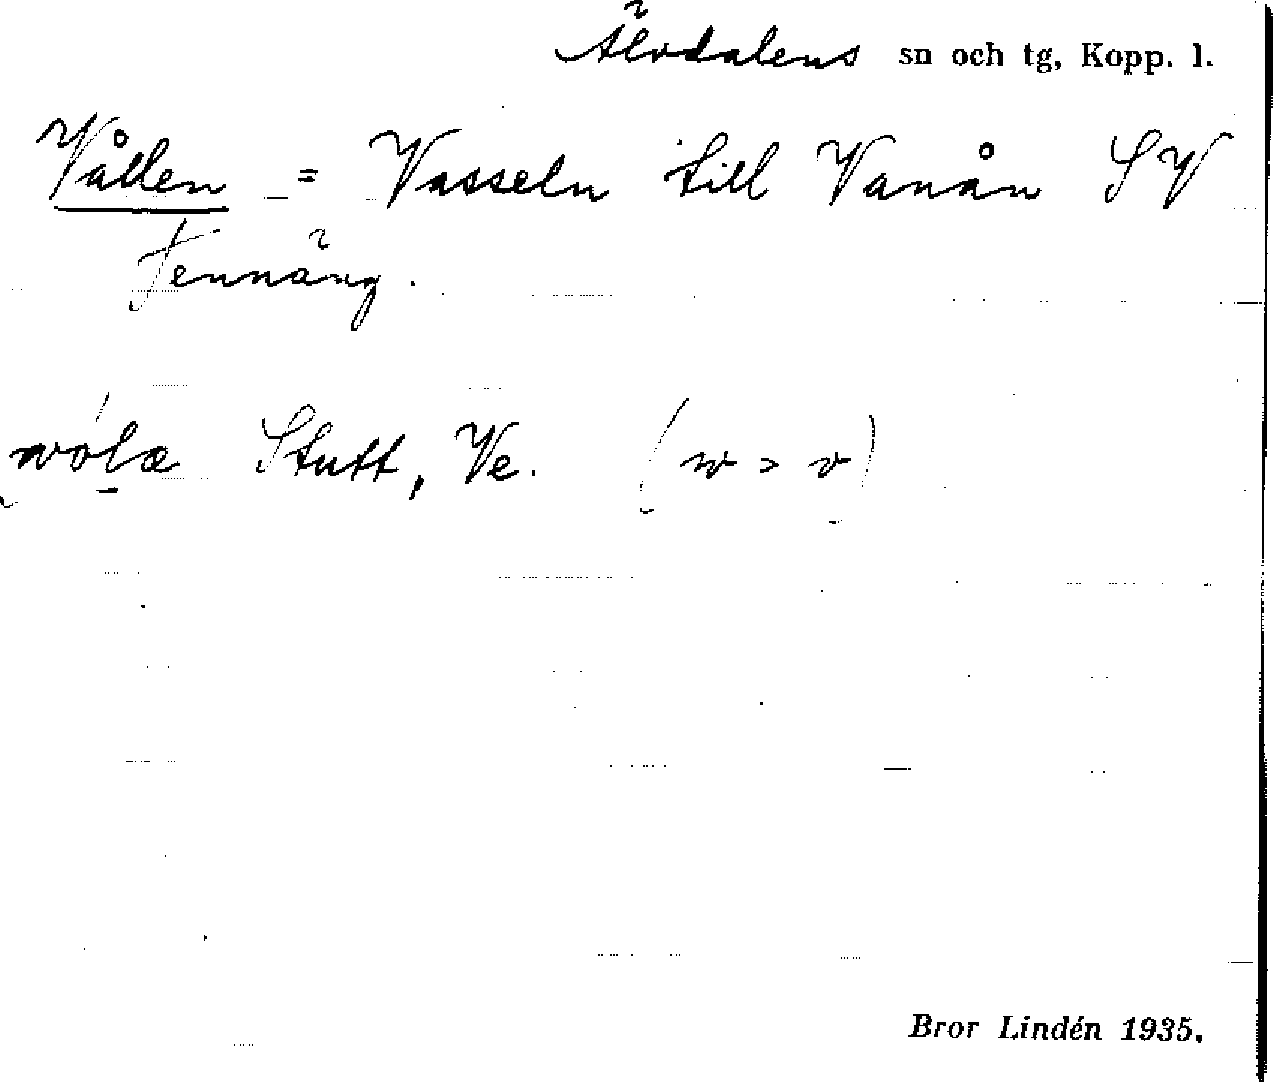 Älvdalens sn och tg, Kopp. l.
Vållen = Vasseln till Vanån SV
Tennäng.
wóla Stutt, Ve. (w > v)
Bror Lindén 1935.